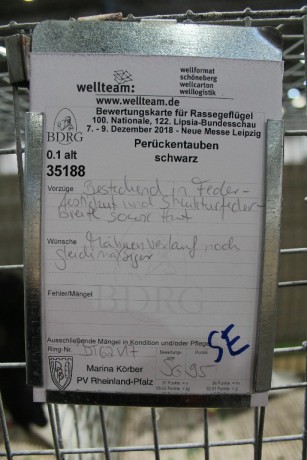 wellteam:
wellformat
schöneberg
wellcarton
welllogistik
www.wellteam.de
Bewertungskarte für Rassegeflügel
100. Nationale, 122. Lipsia-Bundesschau
7. - 9. Dezember 2018 - Neue Messe Leipzig
BDRG
0.1 alt
35188
Perückentauben
schwarz
Vorzüge
Bestechend in Feder-
und Strukturfeder-
breite sowie
Wünsche
Mähnenverlauf noch
gleichmäßiger
BDRG
Fehler/Mängel
Ausschließende Mängel in Kondition und/oder Pflege
SE
Ring-Nr.
Marina Körber
PV Rheinland-Pfalz
SG 95